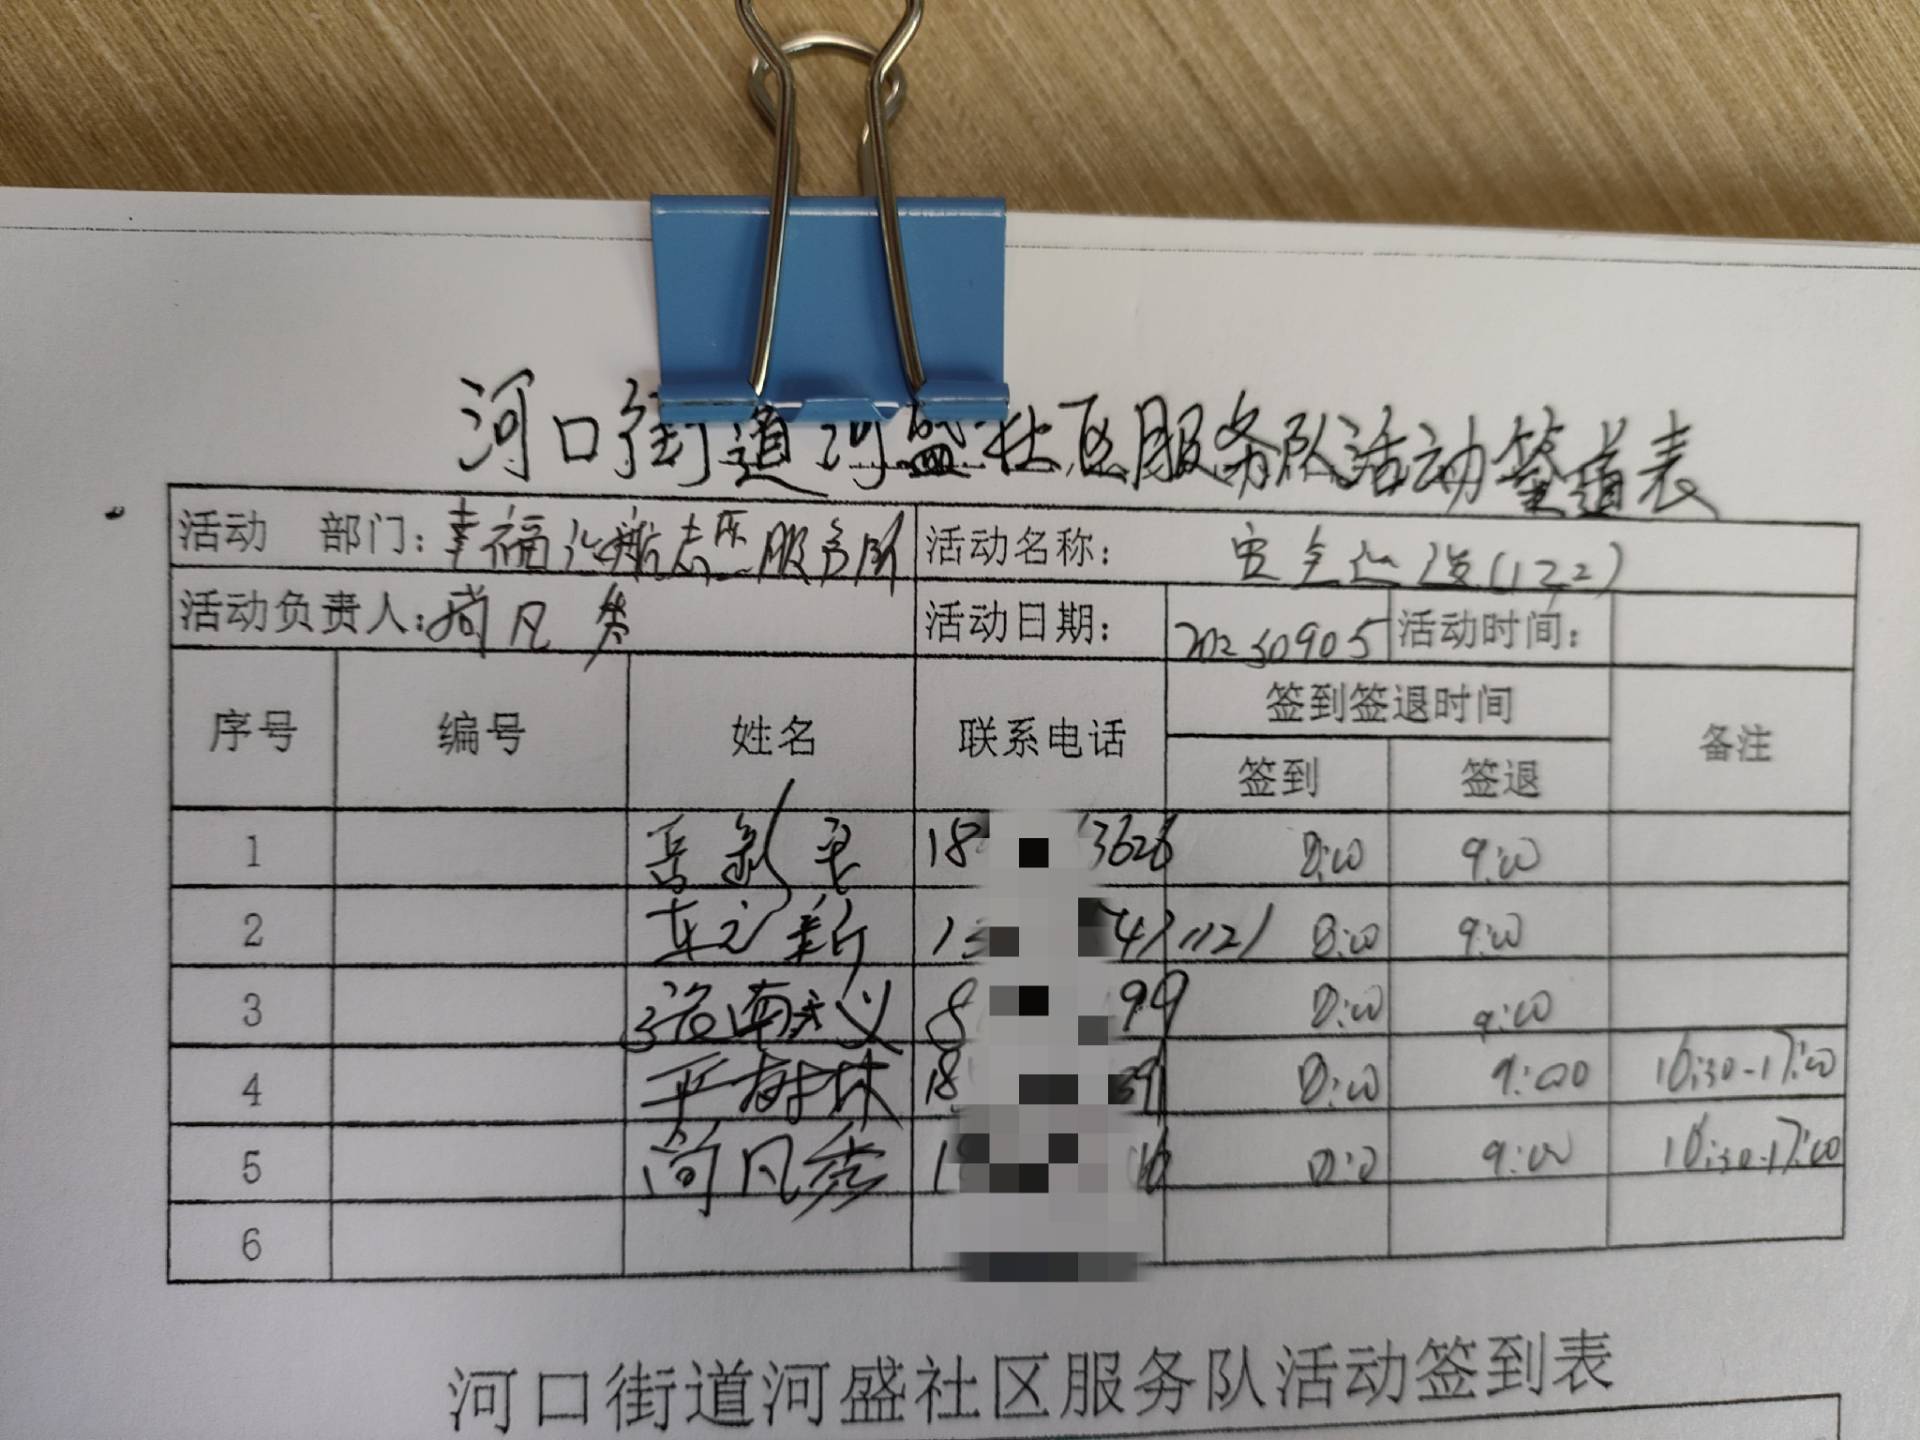 河口街道河盛社区服务队活动签道表
活动 部门：幸福 航志愿服务队 活动名称：安全巡逻(122)
活动负责人：尚凡秀 活动日期：20230905 活动时间：
序号 编号 姓名 联系电话 签到签退时间 备注
签到 签退
1 18 3626 8:00 9:00
2 13 471121 8:00 9:00
3 8 99 8:00 9:00
4 平树林 18 391 8:00 9:00 16:30-17:00
5 尚凡秀 1 16 8:00 9:00 16:30-17:00
6
河口街道河盛社区服务队活动签到表